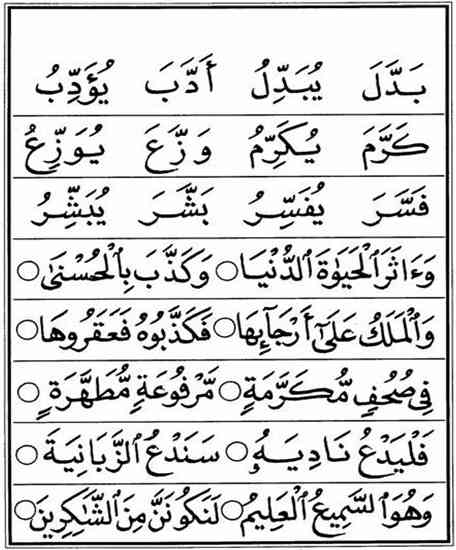 بَدَّلَ يُبَدِّلُ أَدَّبَ يُؤَدِّبُ
كَرَّمَ يُكَرِّمُ وَزَّعَ يُوَزِّعُ
فَسَّرَ يُفَسِّرُ بَشَّرَ يُبَشِّرُ
وَءَاثَرَ ٱلْحَيَوٰةَ ٱلدُّنْيَا ○ وَكَذَّبَ بِٱلْحُسْنَىٰ ○
وَٱلْمَلَكُ عَلَىٰٓ أَرْجَآئِهَا ○ فَكَذَّبُوهُ فَعَقَرُوهَا ○
فِى صُحُفٍ مُّكَرَّمَةٍ ○ مَّرْفُوعَةٍ مُّطَهَّرَةٍ ○
فَلْيَدْعُ نَادِيَهُۥ ○ سَنَدْعُ ٱلزَّبَانِيَةَ ○
وَهُوَ ٱلسَّمِيعُ ٱلْعَلِيمُ ○ لَنَكُونَنَّ مِنَ ٱلشَّٰكِرِينَ ○